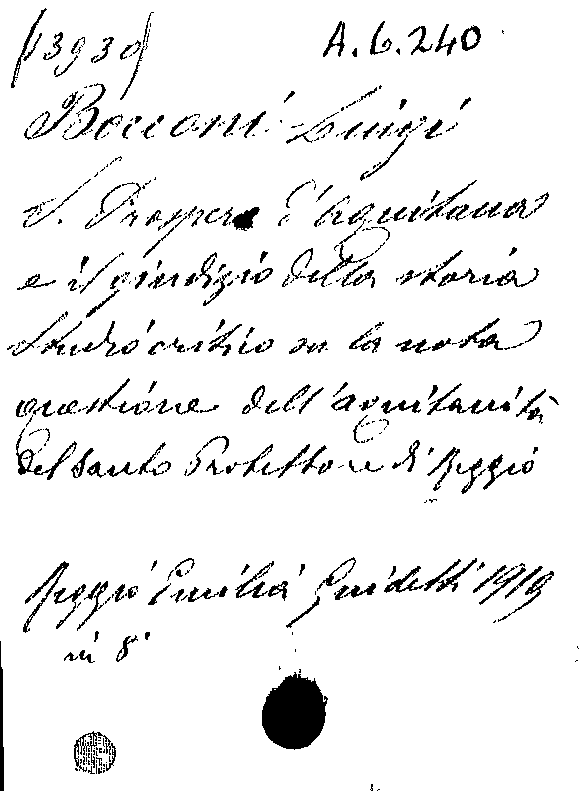 (13930)
A.6.240
Bocconi Luigi
S. Prospero d'Aquitana
e il giudizio della storia
studio critico su la nota
questione dell'aquitanità
del santo Protettore di Reggio
Reggio Emilia Guidetti 1919
in 8°